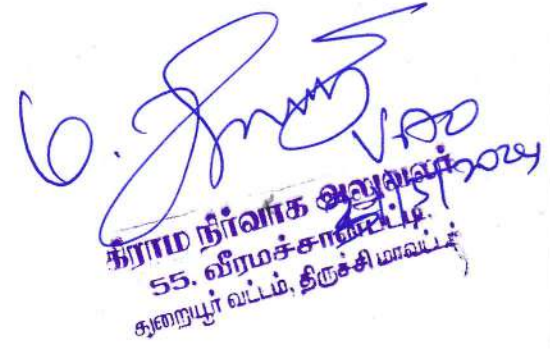 VAO
கிராம நிர்வாக அலுவலர்
55. வீரமச்சான்பட்டி.
துறையூர் வட்டம், திருச்சி மாவட்டம்